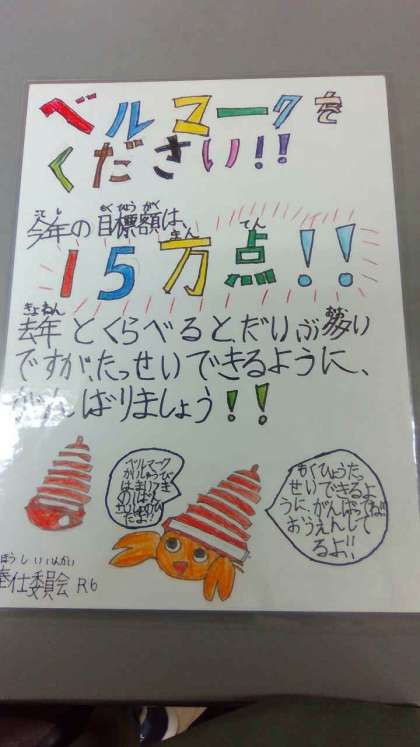 ベルマークを
ください!!
ことし もくひょう がく
今年の目標額は、
まん てん
15万点!!
きょねん
去年とくらべると、だいぶ多い
ですが、たっせいできるように、
がんばりましょう!!
ベルマーク
かいしゅうび
は
だよ!!
もくひょうたっ
せいできるよ
うに、がんばってね!!
おうえんして
るよ!!
ほうしいいんかい
奉仕委員会 R6